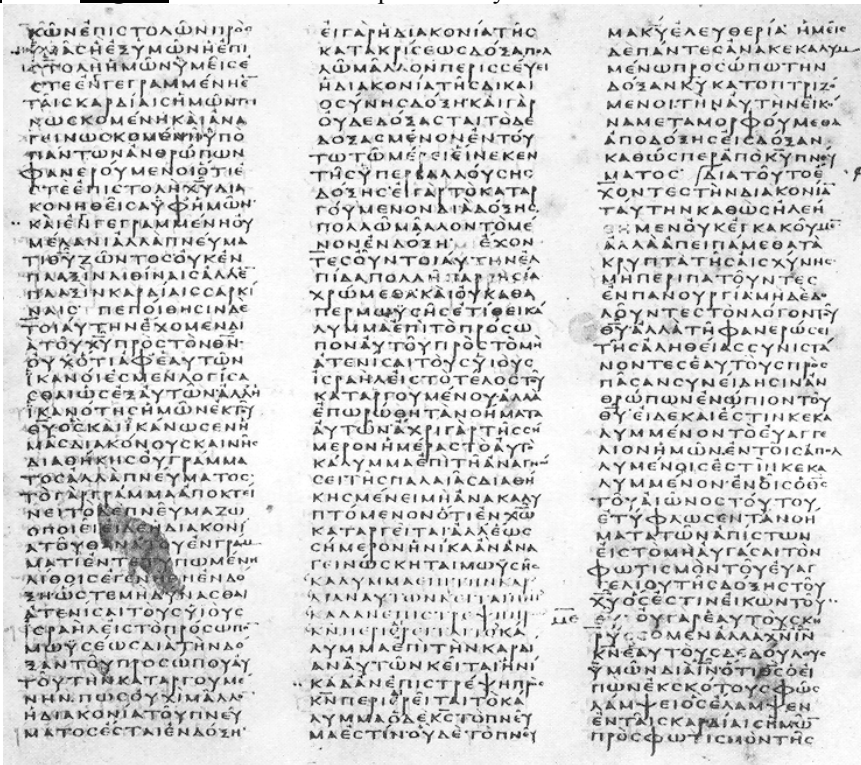 ΚΩΝΕΠΙϹΤΟΛΩΝΠΡΟϹ
ΥΜΑϹΗΕΞΥΜΩΝΗΕΠΙ
ϹΤΟΛΗΗΜΩΝΥΜΕΙϹΕ
ϹΤΕΕΝΓΕΓΡΑΜΜΕΝΗΕΝ
ΤΑΙϹΚΑΡΔΙΑΙϹΗΜΩΝΓΙ
ΝΩϹΚΟΜΕΝΗΚΑΙΑΝΑ
ΓΕΙΝΩϹΚΟΜΕΝΗΥΠΟ
ΠΑΝΤΩΝΑΝΘΡΩΠΩΝ
ΦΑΝΕΡΟΥΜΕΝΟΙΟΤΙΕ
ϹΤΕΕΠΙϹΤΟΛΗΧ̅Υ̅ΔΙΑ
ΚΟΝΗΘΕΙϹΑΥΦΗΜΩΝ
ΚΑΙΕΝΓΕΓΡΑΜΜΕΝΗΟΥ
ΜΕΛΑΝΙΑΛΛΑΠΝΕΥΜΑ
ΤΙΘ̅Υ̅ΖΩΝΤΟϹΟΥΚΕΝ
ΠΛΑΞΙΝΛΙΘΙΝΑΙϹΑΛΛΕΝ
ΠΛΑΞΙΝΚΑΡΔΙΑΙϹϹΑΡΚΙ
ΝΑΙϹ ΠΕΠΟΙΘΗϹΙΝΔΕ
ΤΟΙΑΥΤΗΝΕΧΟΜΕΝΔΙ
ΑΤΟΥΧ̅Υ̅ΠΡΟϹΤΟΝΘ̅Ν̅
ΟΥΧΟΤΙΑΦΕΑΥΤΩΝ
ΙΚΑΝΟΙΕϹΜΕΝΛΟΓΙϹΑ
ϹΘΑΙΩϹΕΞΑΥΤΩΝΑΛΛΗ
ΙΚΑΝΟΤΗϹΗΜΩΝΕΚΤΟΥ
ΘΥΟϹΚΑΙΙΚΑΝΩϹΕΝΗ
ΜΑϹΔΙΑΚΟΝΟΥϹΚΑΙΝΗϹ
ΔΙΑΘΗΚΗϹΟΥΓΡΑΜΜΑ
ΤΟϹΑΛΛΑΠΝΕΥΜΑΤΟϹ
ΤΟΓΑΡΓΡΑΜΜΑΑΠΟΚΤΕΙ
ΝΕΙΤΟΔΕΠΝΕΥΜΑΖΩ
ΟΠΟΙΕΙΕΙΔΕΗΔΙΑΚΟΝΙ
ΑΤΟΥΘΑΝΑΤΟΥΕΝΓΡΑΜ
ΜΑΤΙΕΝΤΕΤΥΠΩΜΕΝΗ
ΛΙΘΟΙϹΕΓΕΝΗΘΗΕΝΔΟ
ΞΗΩϹΤΕΜΗΔΥΝΑϹΘΑΙ
ΑΤΕΝΙϹΑΙΤΟΥϹΥΙΟΥϹ
ΙϹΡΑΗΛΕΙϹΤΟΠΡΟϹΩΠΟΝ
ΜΩΥϹΕΩϹΔΙΑΤΗΝΔΟ
ΞΑΝΤΟΥΠΡΟϹΩΠΟΥΑΥ
ΤΟΥΤΗΝΚΑΤΑΡΓΟΥΜΕ
ΝΗΝ ΠΩϹΟΥΧΙΜΑΛΛΟΝ
ΗΔΙΑΚΟΝΙΑΤΟΥΠΝΕΥ
ΜΑΤΟϹΕϹΤΑΙΕΝΔΟΞΗ
ΕΙΓΑΡΗΔΙΑΚΟΝΙΑΤΗϹ
ΚΑΤΑΚΡΙϹΕΩϹΔΟΞΑΠΟΛ
ΛΩΜΑΛΛΟΝΠΕΡΙϹϹΕΥΕΙ
ΗΔΙΑΚΟΝΙΑΤΗϹΔΙΚΑΙ
ΟϹΥΝΗϹΔΟΞΗΚΑΙΓΑΡ
ΟΥΔΕΔΟΞΑϹΤΑΙΤΟΔΕ
ΔΟΞΑϹΜΕΝΟΝΕΝΤΟΥ
ΤΩΤΩΜΕΡΕΙΕΙΝΕΚΕΝ
ΤΗϹΥΠΕΡΒΑΛΛΟΥϹΗϹ
ΔΟΞΗϹ ΕΙΓΑΡΤΟΚΑΤΑΡ
ΓΟΥΜΕΝΟΝΔΙΑΔΟΞΗϹ
ΠΟΛΛΩΜΑΛΛΟΝΤΟΜΕ
ΝΟΝΕΝΔΟΞΗ ΕΧΟΝ
ΤΕϹΟΥΝΤΟΙΑΥΤΗΝΕΛ
ΠΙΔΑΠΟΛΛΗΠΑΡΡΗϹΙΑ
ΧΡΩΜΕΘΑΚΑΙΟΥΚΑΘΑ
ΠΕΡΜΩΥϹΗϹΕΤΙΘΕΙΚΑ
ΛΥΜΜΑΕΠΙΤΟΠΡΟϹΩ
ΠΟΝΑΥΤΟΥΠΡΟϹΤΟΜΗ
ΑΤΕΝΙϹΑΙΤΟΥϹΥΙΟΥϹ
ΙϹΡΑΗΛΕΙϹΤΟΤΕΛΟϹΤΟΥ
ΚΑΤΑΡΓΟΥΜΕΝΟΥΑΛΛΑ
ΕΠΩΡΩΘΗΤΑΝΟΗΜΑΤΑ
ΑΥΤΩΝΑΧΡΙΓΑΡΤΗϹϹΗ
ΜΕΡΟΝΗΜΕΡΑϹΤΟΑΥΤΟ
ΚΑΛΥΜΜΑΕΠΙΤΗΑΝΑΓΝΩ
ϹΕΙΤΗϹΠΑΛΑΙΑϹΔΙΑΘΗ
ΚΗϹΜΕΝΕΙΜΗΑΝΑΚΑΛΥ
ΠΤΟΜΕΝΟΝΟΤΙΕΝΧ̅Ω̅
ΚΑΤΑΡΓΕΙΤΑΙΑΛΛΕΩϹ
ϹΗΜΕΡΟΝΗΝΙΚΑΑΝΑΝΑ
ΓΕΙΝΩϹΚΗΤΑΙΜΩΥϹΗϹ
ΚΑΛΥΜΜΑΕΠΙΤΗΝΚΑΡ
ΔΙΑΝΑΥΤΩΝΚΕΙΤΑΙΗΝΙ
ΚΑΔΑΝΕΠΙϹΤΡΕΨΗΠΡ
Κ̅Ν̅ΠΕΡΙΕΡΕΙΤΑΙΤΟΚΑ
ΛΥΜΜΑΕΠΙΤΗΝΚΑΡΔΙ
ΑΝΑΥΤΩΝΚΕΙΤΑΙΗΝΙ
ΚΑΔΑΝΕΠΙϹΤΡΕΨΗΠΡΟϹ
Κ̅Ν̅ΠΕΡΙΕΡΕΙΤΑΙΤΟΚΑ
ΛΥΜΜΑΟΔΕΚϹΤΟΠΝΕΥ
ΜΑΕϹΤΙΝΟΥΔΕΤΟΠΝΕΥ
ΜΑΚ̅Υ̅ΕΛΕΥΘΕΡΙΑ ΗΜΕΙϹ
ΔΕΠΑΝΤΕϹΑΝΑΚΕΚΑΛΥΜ
ΜΕΝΩΠΡΟϹΩΠΩΤΗΝ
ΔΟΞΑΝΚ̅Υ̅ΚΑΤΟΠΤΡΙΖΟ
ΜΕΝΟΙΤΗΝΑΥΤΗΝΕΙΚΟ
ΝΑΜΕΤΑΜΟΡΦΟΥΜΕΘΑ
ΑΠΟΔΟΞΗϹΕΙϹΔΟΞΑΝ
ΚΑΘΩϹΠΕΡΑΠΟΚ̅Υ̅ΠΝΕΥ
ΜΑΤΟϹ ΔΙΑΤΟΥΤΟΕ
ΧΟΝΤΕϹΤΗΝΔΙΑΚΟΝΙΑ
ΤΑΥΤΗΝΚΑΘΩϹΗΛΕΗ
ΘΗΜΕΝΟΥΚΕΓΚΑΚΟΥΜΕ
ΑΛΛΑΑΠΕΙΠΑΜΕΘΑΤΑ
ΚΡΥΠΤΑΤΗϹΑΙϹΧΥΝΗϹ
ΜΗΠΕΡΙΠΑΤΟΥΝΤΕϹ
ΕΝΠΑΝΟΥΡΓΙΑΜΗΔΕΔΟ
ΛΟΥΝΤΕϹΤΟΝΛΟΓΟΝΤΟΥ
Θ̅Υ̅ΑΛΛΑΤΗΦΑΝΕΡΩϹΕΙ
ΤΗϹΑΛΗΘΕΙΑϹϹΥΝΙϹΤΑ
ΝΟΝΤΕϹΕΑΥΤΟΥϹΠΡΟϹ
ΠΑϹΑΝϹΥΝΕΙΔΗϹΙΝΑΝ
ΘΡΩΠΩΝΕΝΩΠΙΟΝΤΟΥ
Θ̅Υ̅ΕΙΔΕΚΑΙΕϹΤΙΝΚΕΚΑ
ΛΥΜΜΕΝΟΝΤΟΕΥΑΓΓΕ
ΛΙΟΝΗΜΩΝΕΝΤΟΙϹΑΠΟΛ
ΛΥΜΕΝΟΙϹΕϹΤΙΝΚΕΚΑ
ΛΥΜΜΕΝΟΝΕΝΟΙϹΟΘΕΟϹ
ΤΟΥΑΙΩΝΟϹΤΟΥΤΟΥ
ΕΤΥΦΛΩϹΕΝΤΑΝΟΗ
ΜΑΤΑΤΩΝΑΠΙϹΤΩΝ
ΕΙϹΤΟΜΗΑΥΓΑϹΑΙΤΟΝ
ΦΩΤΙϹΜΟΝΤΟΥΕΥΑΓ
ΓΕΛΙΟΥΤΗϹΔΟΞΗϹΤΟΥ
Χ̅Υ̅ΟϹΕϹΤΙΝΕΙΚΩΝΤΟΥ
ΜΕ ΟΥΓΑΡΕΑΥΤΟΥϹΚΗ
ΡΥϹϹΟΜΕΝΑΛΛΑΧ̅Ν̅Ι̅Ν̅
Κ̅Ν̅ΕΑΥΤΟΥϹΔΕΔΟΥΛΟΥϹ
ΥΜΩΝΔΙΑΙ̅Ν̅ΟΤΙΟΘϹΟΕΙ
ΠΩΝΕΚϹΚΟΤΟΥϹΦΩϹ
ΛΑΜΨΕΙΟϹΕΛΑΜΨΕΝ
ΕΝΤΑΙϹΚΑΡΔΙΑΙϹΗΜΩ
ΠΡΟϹΦΩΤΙϹΜΟΝΤΗϹ